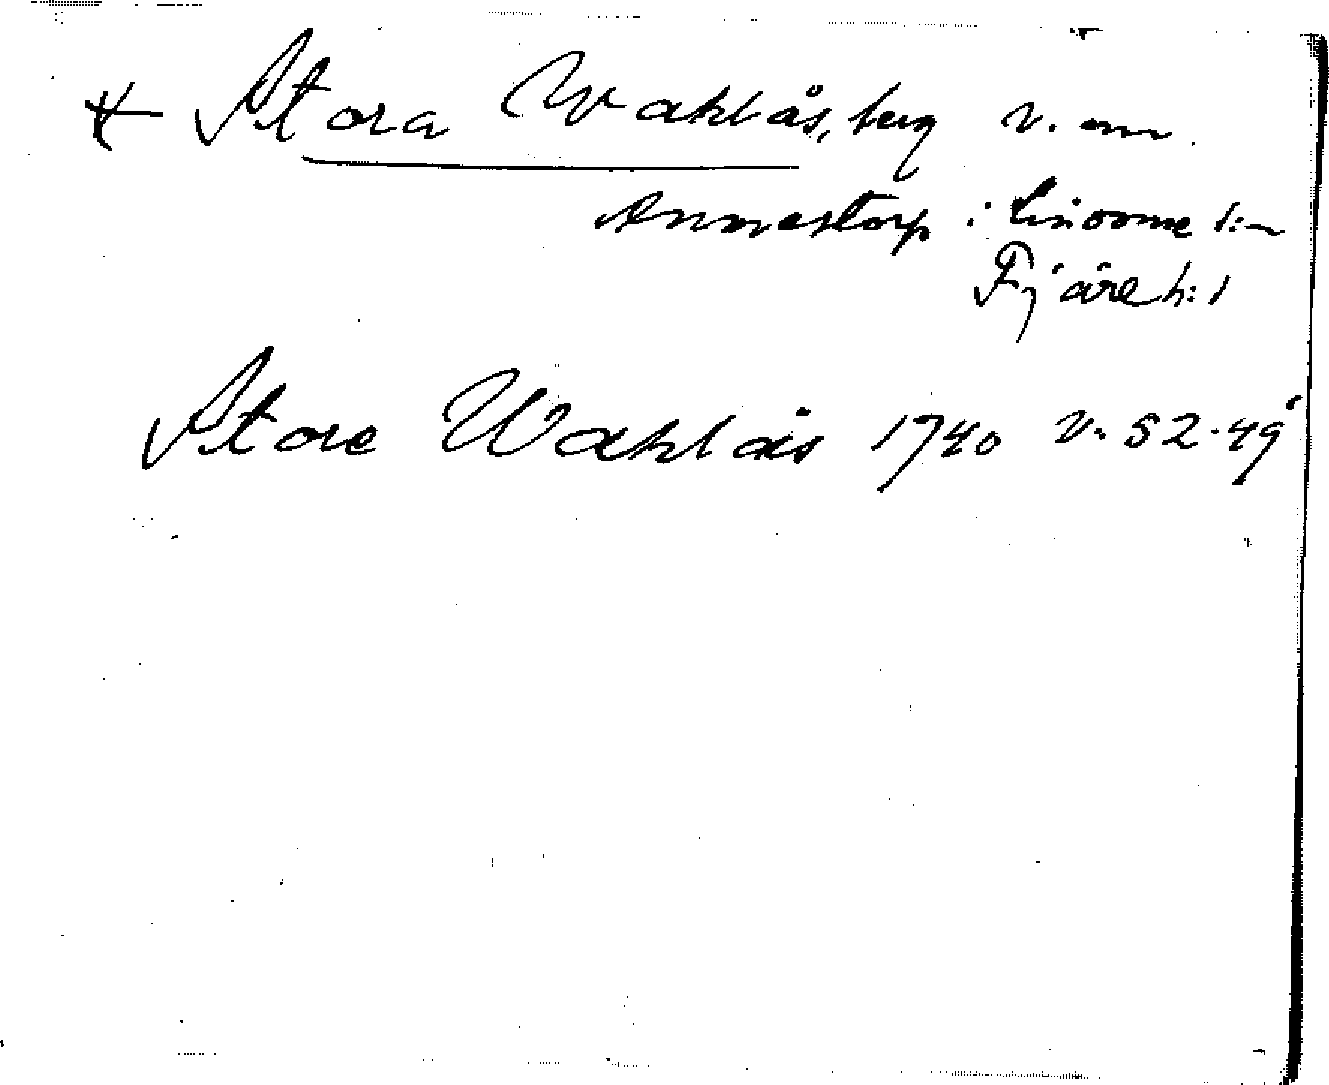 + Stora Wahlås, berg v. om
Annestorp i Lindome s:n
Fjäre h:d
Store Wahlås 1740 v. 52-49